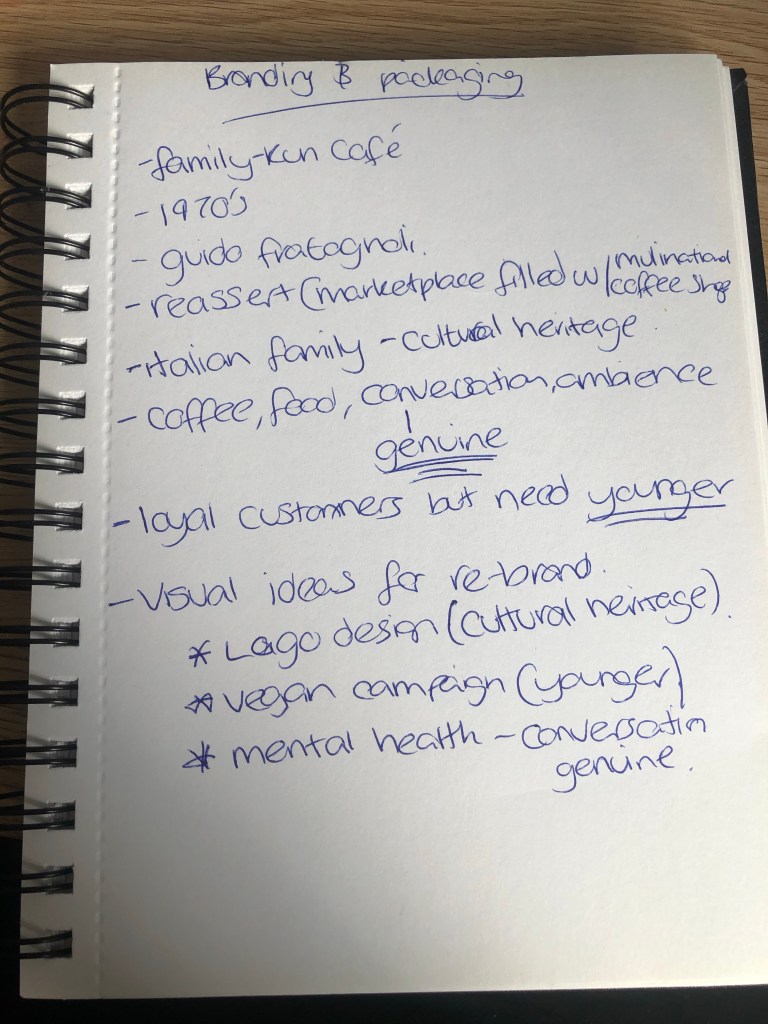 Branding & packaging
-family-run café
- 1970's
- guido fratagnoli.
- reassert (marketplace filled w/ mulinational coffee shops
-italian family - cultural heritage.
- coffee, food, conversation, ambience
genuine
- loyal customers but need younger
- Visual ideas for re-brand.
* Logo design (cultural heritage).
* vegan campaign (younger)
* mental health - conversation
genuine.